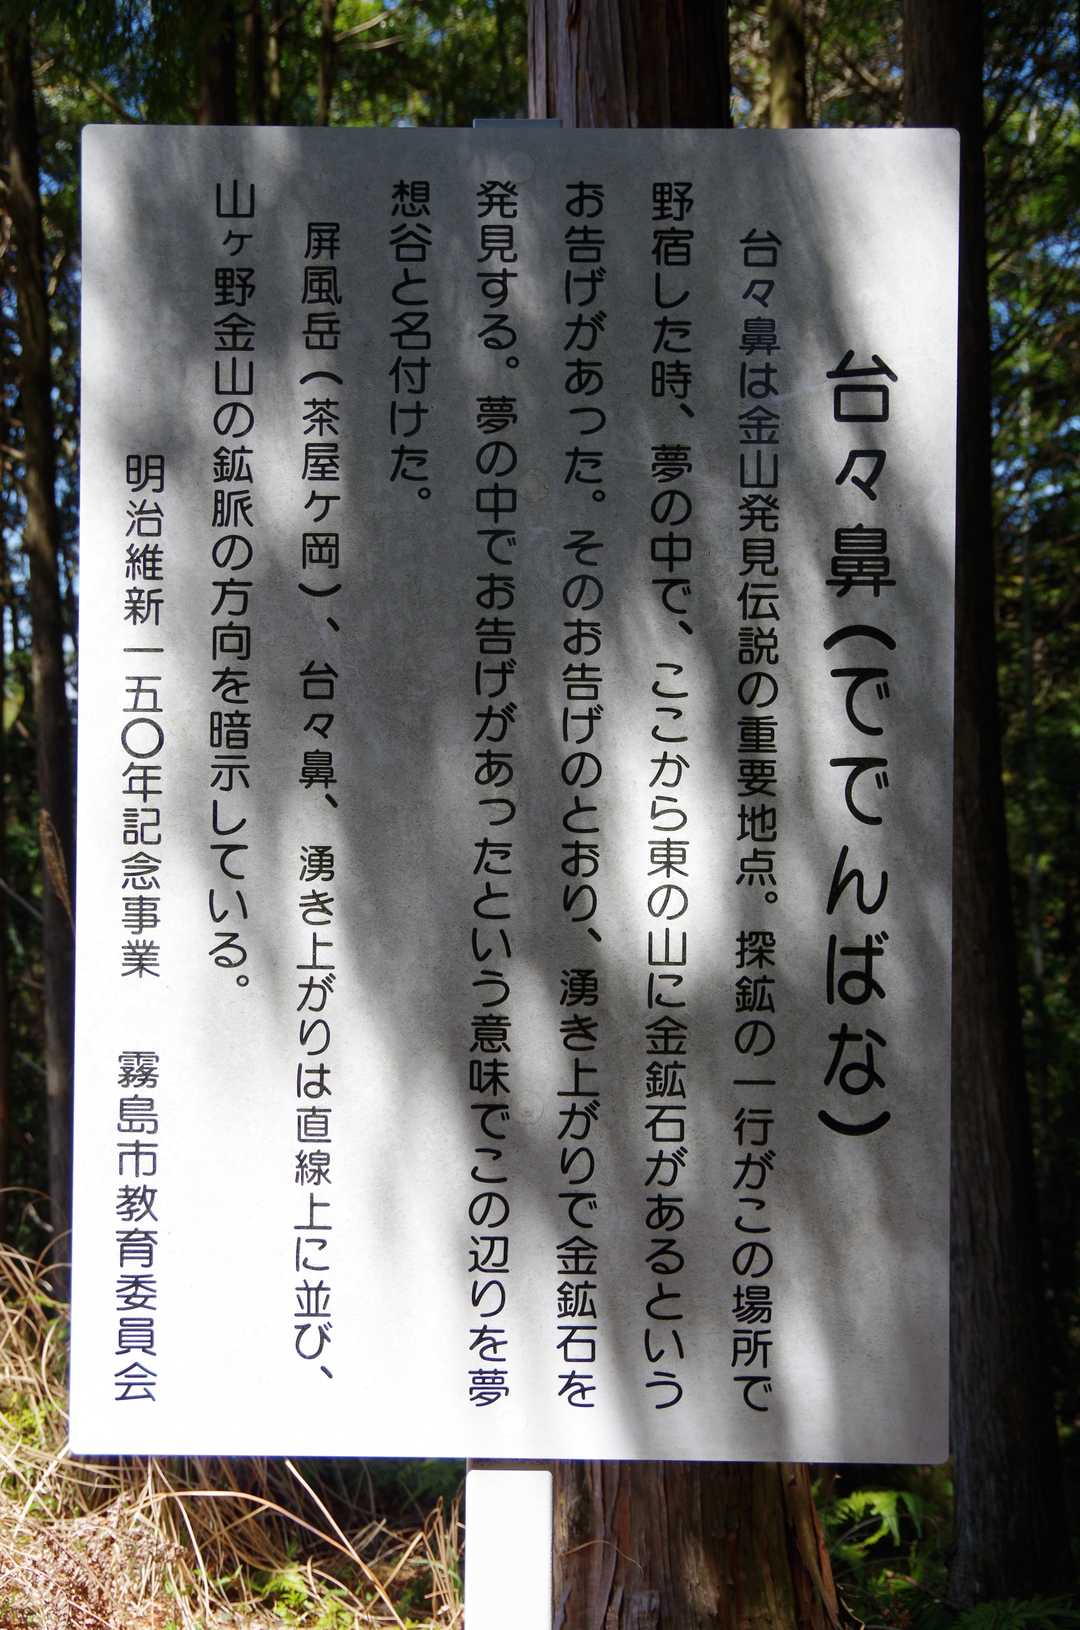 台々鼻(ででんばな)
台々鼻は金山発見伝説の重要地点。探鉱の一行がこの場所で
野宿した時、夢の中で、ここから東の山に金鉱石があるという
お告げがあった。そのお告げのとおり、湧き上がりで金鉱石を
発見する。夢の中でお告げがあったという意味でこの辺りを夢
想谷と名付けた。
屏風岳(茶屋ケ岡)、台々鼻、湧き上がりは直線上に並び、
山ヶ野金山の鉱脈の方向を暗示している。
明治維新一五〇年記念事業 霧島市教育委員会